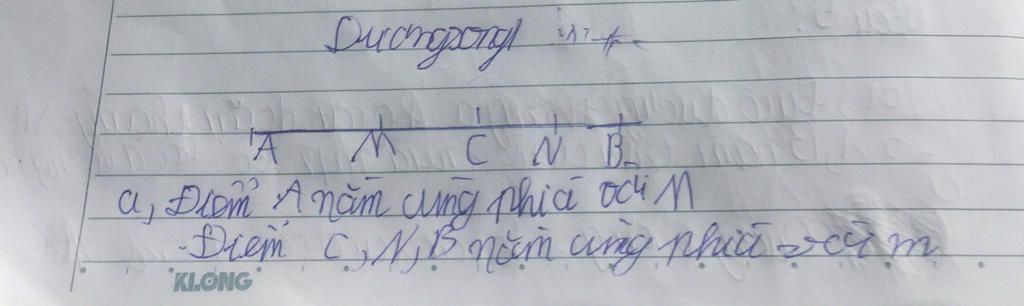 A M C N B
a, Điểm A nằm cùng phía với M
- Điểm C, N, B nằm cùng phía với m
KLONG